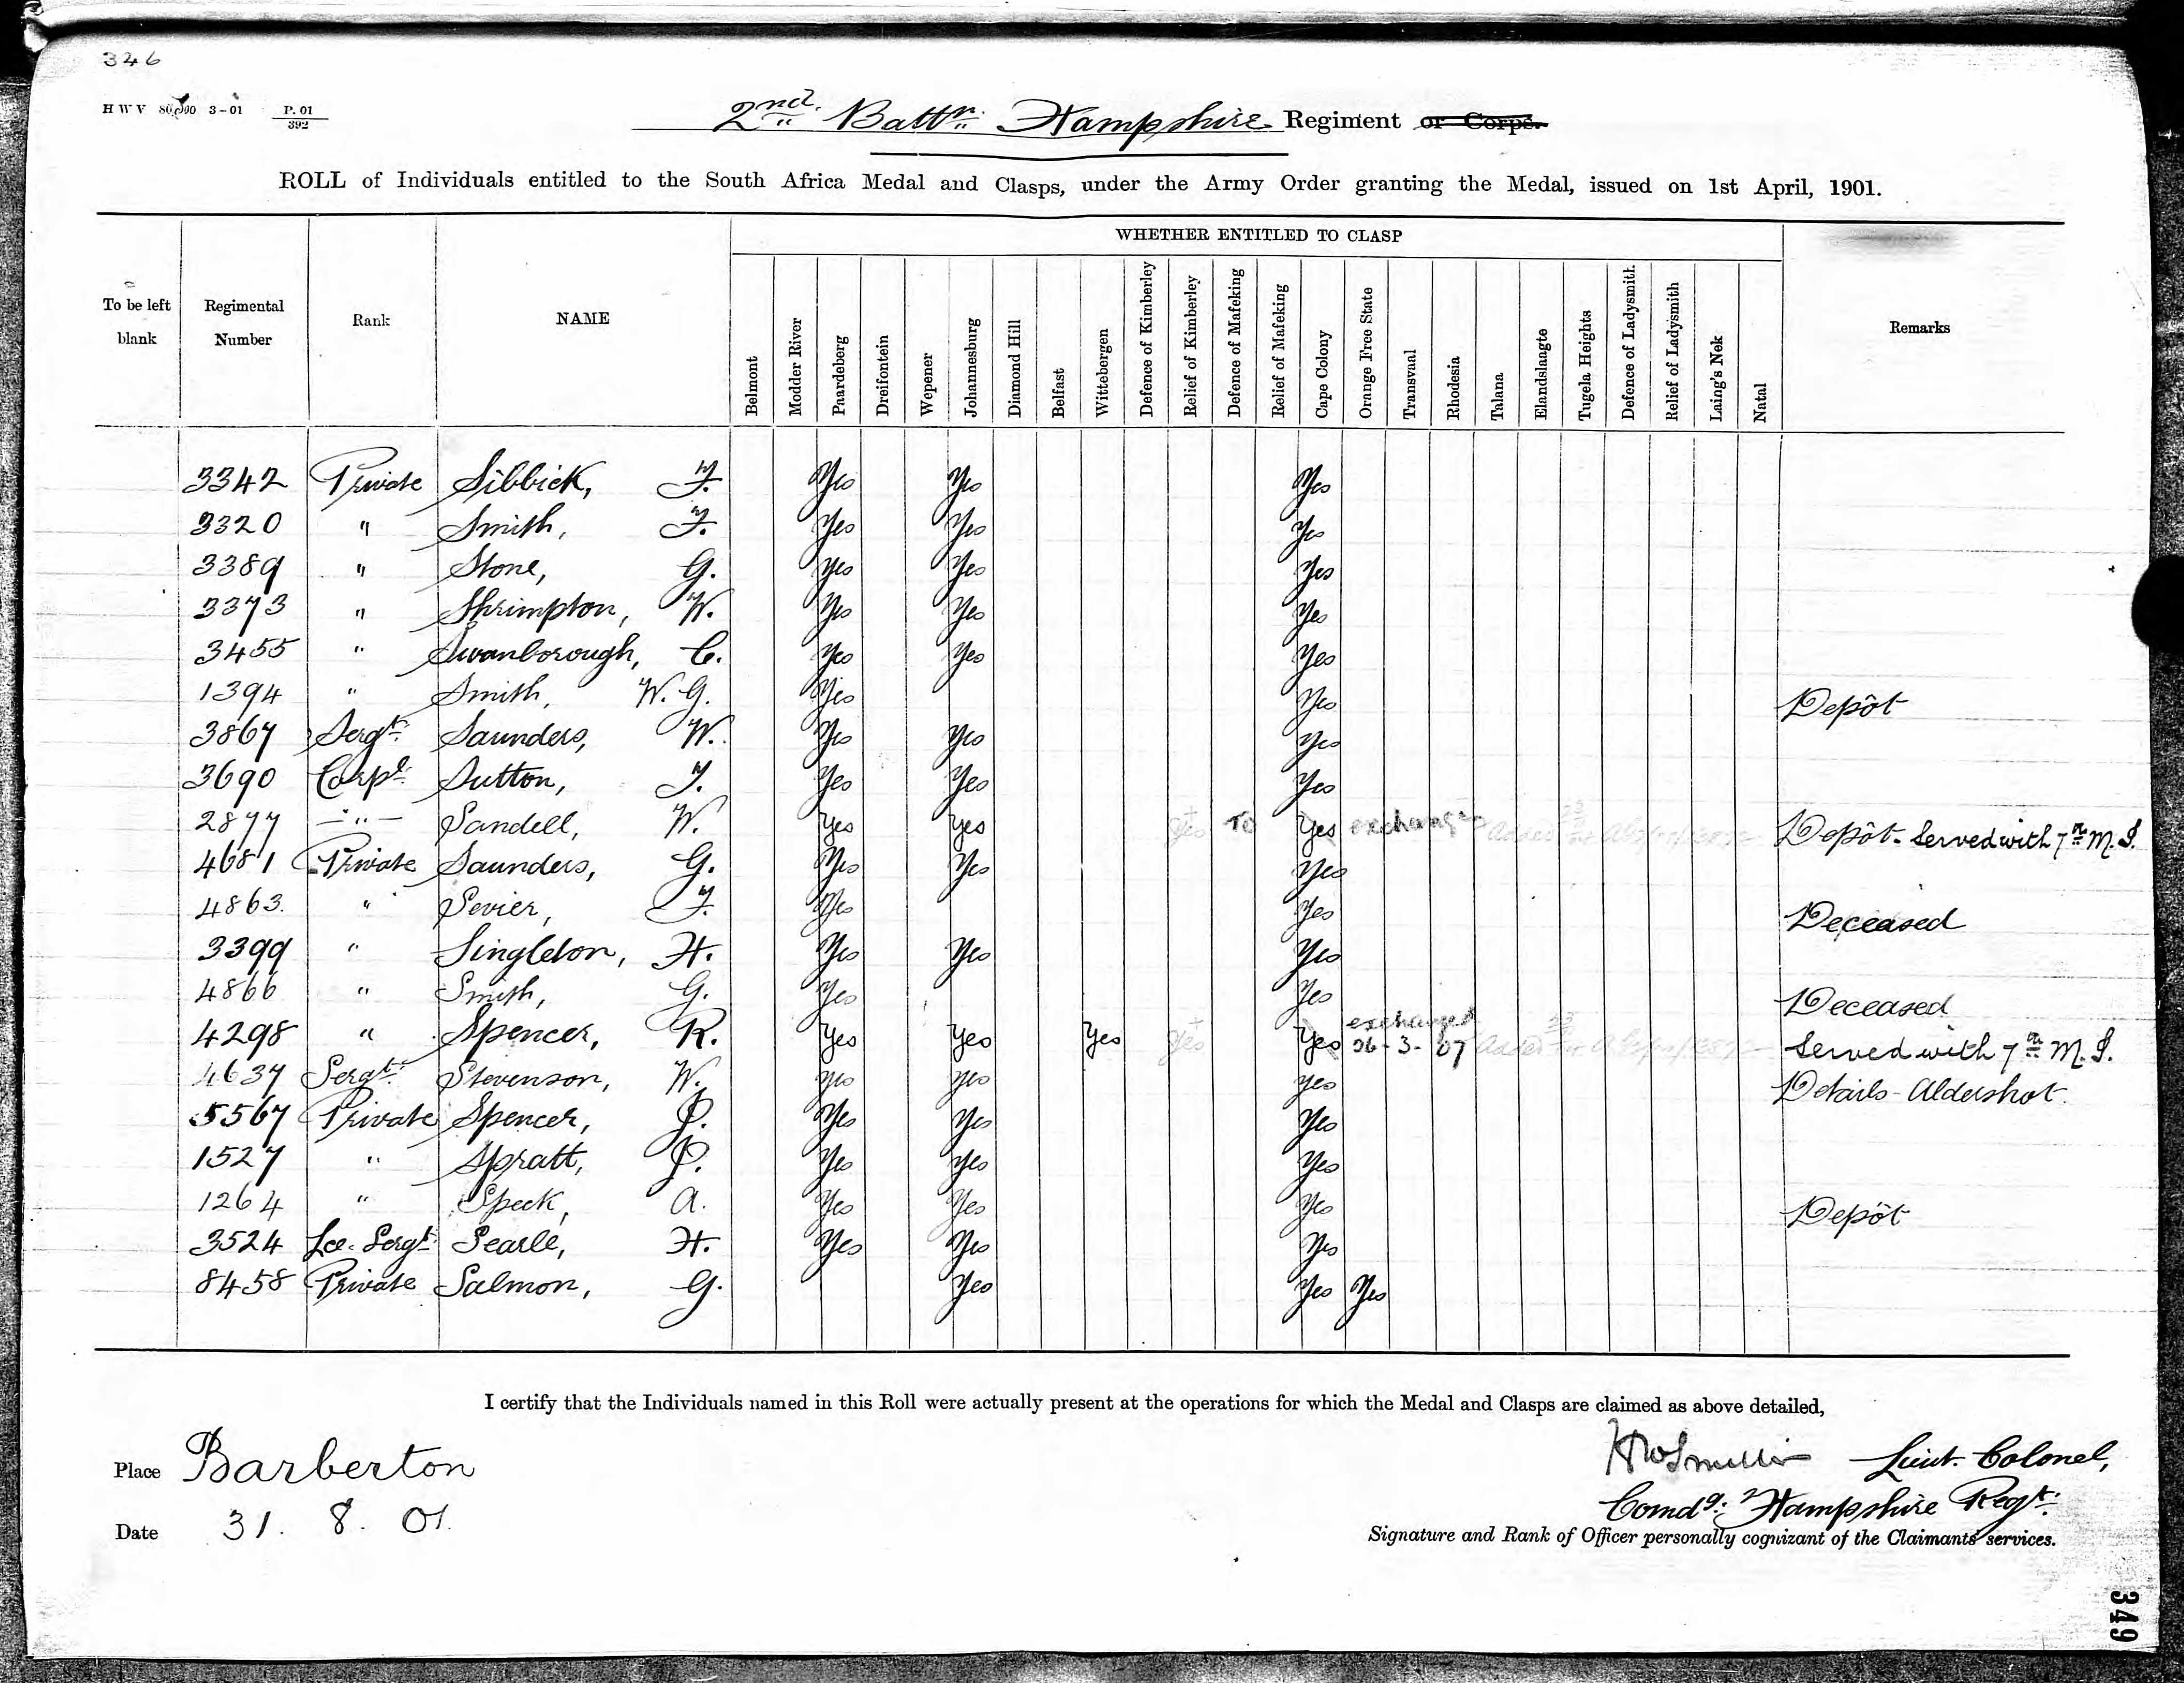 346
H W V 3-01 P. 01
392
2nd. Battn: Hampshire Regiment or Corps.
ROLL of Individuals entitled to the South Africa Medal and Clasps, under the Army Order granting the Medal, issued on 1st April, 1901.
WHETHER ENTITLED TO CLASP
To be left blank
Regimental Number
Rank
NAME
Belmont
Modder River
Paardeberg
Dreifontein
Wepener
Johannesburg
Diamond Hill
Belfast
Wittebergen
Defence of Kimberley
Relief of Kimberley
Defence of Mafeking
Relief of Mafeking
Cape Colony
Orange Free State
Transvaal
Rhodesia
Talana
Elandslaagte
Tugela Heights
Defence of Ladysmith
Relief of Ladysmith
Laing's Nek
Natal
Remarks
3342 Private Sibbick, F. Yes Yes Yes
3320 " Smith, F. Yes Yes Yes
3389 " Stone, G. Yes Yes Yes
3373 " Shrimpton, W. Yes Yes Yes
3455 " Swanborough, C. Yes Yes Yes
1394 " Smith, W. G. Yes Yes Depôt
3867 Sergt: Saunders, W. Yes Yes Yes
3690 Corpl: Sutton, J. Yes Yes Yes
2877 -"- Sandell, W. Yes Yes Yes To Yes exchange Depôt. Served with 7th M.I.
4681 Private Saunders, G. Yes Yes Yes
4863. " Sevier, F. Yes Yes Deceased
3399 " Singleton, H. Yes Yes Yes
4866 " Smith, G. Yes Yes Deceased
4298 " Spencer, R. Yes Yes Yes Yes Yes exchanged 26-3-07 Served with 7th M.I.
4637 Sergt: Stevenson, W. Yes Yes Yes Details - Aldershot.
5567 Private Spencer, J. Yes Yes Yes
1527 " Spratt, J. Yes Yes Yes
1264 " Speck, A. Yes Yes Yes Depôt
3524 Lce. Sergt: Searle, H. Yes Yes Yes
8458 Private Salmon, G. Yes Yes Yes
I certify that the Individuals named in this Roll were actually present at the operations for which the Medal and Clasps are claimed as above detailed,
Place Barberton
Lieut. Colonel,
Comdg: 2 Hampshire Regt:
Date 31. 8. 01.
Signature and Rank of Officer personally cognizant of the Claimants' services.
349